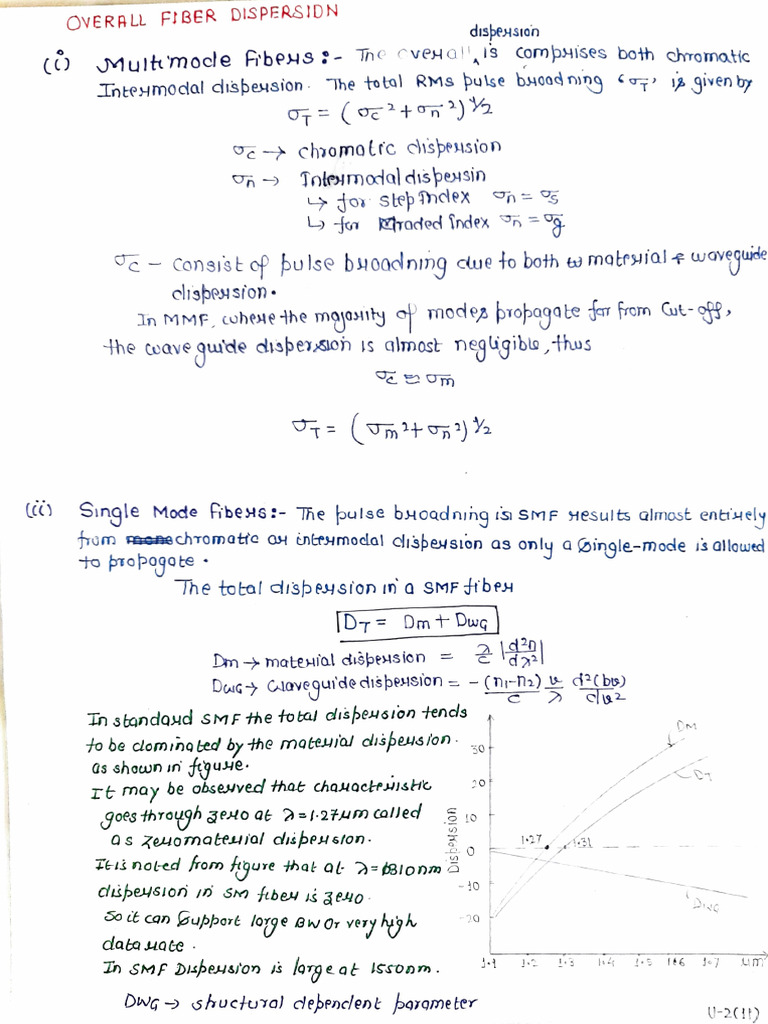 OVERALL FIBER DISPERSION
dispersion
(i) Multimode Fibers:- The overall ∧ is comprises both chromatic
Intermodal dispersion. The total RMS pulse broadning 'σT' is given by
σT = (σc² + σn²)^1/2
σc → chromatic dispersion
σn → Intermodal dispersin
↳ for step index σn = σs
↳ for Graded index σn = σg
σc - consist of pulse broadning due to both material & waveguide
dispersion.
In MMF, where the majority of modes propagate far from Cut-off,
the wave guide dispersion is almost negligible, thus
σc ≅ σm
σT = (σm² + σn²)^1/2
(ii) Single Mode Fibers:- The pulse broadning is SMF results almost entirely
from chromatic or intermodal dispersion as only a single-mode is allowed
to propagate.
The total dispersion in a SMF fiber
DT = Dm + DWG
Dm → material dispersion = λ/c |d²n/dλ²|
DWG → Waveguide dispersion = -(n1-n2)/c v/λ d²(bv)/dv²
In standard SMF the total dispersion tends
to be dominated by the material dispersion.
as shown in figure.
It may be observed that characteristic
goes through zero at λ=1.27μm called
as zero material dispersion.
It is noted from figure that at λ=1310nm
dispersion in SM fiber is zero.
So it can support large BW or very high
data rate.
In SMF Dispersion is large at 1550nm.
DWG → structural dependent parameter
DM
DT
30
20
10
1.27
1.31
0
-10
-20
Dispersion
DWG
1.1 1.2 1.3 1.4 1.5 1.6 1.7 μm
U-2(11)